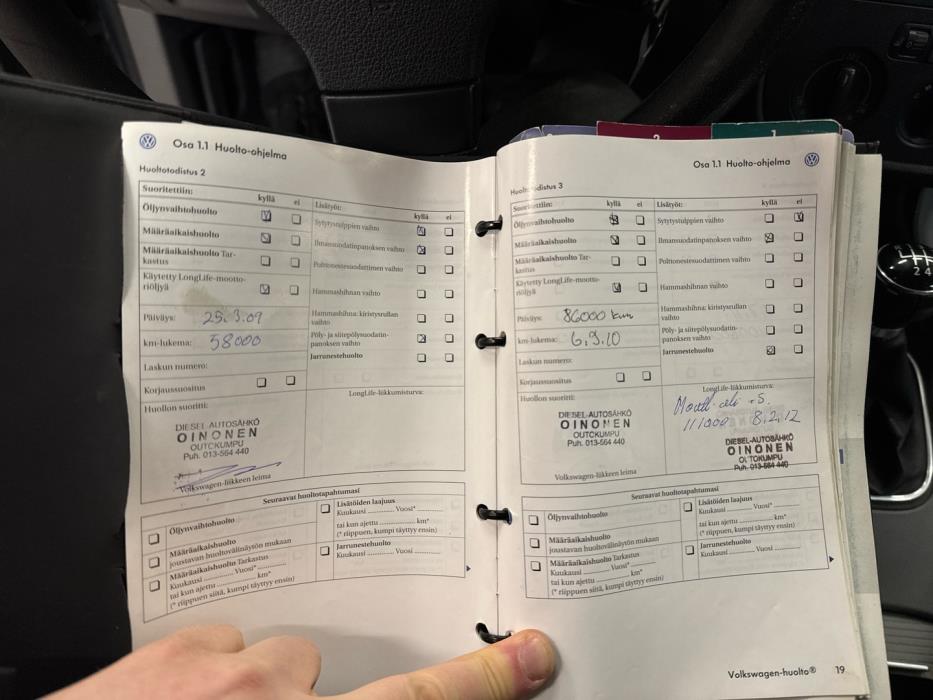 Osa 1.1 Huolto-ohjelma
Huoltotodistus 2
Suoritettiin:
kyllä ei
Öljynvaihtohuolto
Määräaikaishuolto
Määräaikaishuolto Tar-
kastus
Käytetty LongLife-mootto-
riöljyä
Päiväys: 25.3.09
km-lukema: 58000
Laskun numero:
Korjaussuositus
Huollon suoritti:
DIESEL-AUTOSÄHKÖ
OINONEN
OUTOKUMPU
Puh. 013-564 440
Volkswagen-liikkeen leima
Lisätyöt:
kyllä ei
Sytytystulppien vaihto
Ilmansuodatinpanoksen vaihto
Polttonestesuodattimen vaihto
Hammashihnan vaihto
Hammashihna: kiristysrullan
vaihto
Pöly- ja siitepölysuodatin-
panoksen vaihto
Jarrunestehuolto
LongLife-liikkumisturva:
Seuraavat huoltotapahtumasi
Öljynvaihtohuolto
Määräaikaishuolto
joustavan huoltovälinäytön mukaan
Määräaikaishuolto Tarkastus
Kuukausi ............ Vuosi* ............
tai kun ajettu ............ km*
(* riippuen siitä, kumpi täyttyy ensin)
Lisätöiden laajuus
Kuukausi ............ Vuosi* ............
tai kun ajettu ............ km*
(* riippuen, kumpi täyttyy ensin)
Jarrunestehuolto
Kuukausi ............ Vuosi ............
2
1
Osa 1.1 Huolto-ohjelma
Huoltotodistus 3
Suoritettiin:
kyllä ei
Öljynvaihtohuolto
Määräaikaishuolto
Määräaikaishuolto Tar-
kastus
Käytetty LongLife-mootto-
riöljyä
Päiväys: 86000 km
km-lukema: 6.9.10
Laskun numero:
Korjaussuositus
Huollon suoritti:
DIESEL-AUTOSÄHKÖ
OINONEN
OUTOKUMPU
Puh. 013-564 440
Volkswagen-liikkeen leima
Lisätyöt:
kyllä ei
Sytytystulppien vaihto
Ilmansuodatinpanoksen vaihto
Polttonestesuodattimen vaihto
Hammashihnan vaihto
Hammashihna: kiristysrullan
vaihto
Pöly- ja siitepölysuodatin-
panoksen vaihto
Jarrunestehuolto
LongLife-liikkumisturva:
111000 8.2.12
DIESEL-AUTOSÄHKÖ
OINONEN
OUTOKUMPU
Puh. 013-564 440
Seuraavat huoltotapahtumasi
Öljynvaihtohuolto
Määräaikaishuolto
joustavan huoltovälinäytön mukaan
Määräaikaishuolto Tarkastus
Kuukausi ............ Vuosi* ............
tai kun ajettu ............ km*
(* riippuen siitä, kumpi täyttyy ensin)
Lisätöiden laajuus
Kuukausi ............ Vuosi* ............
tai kun ajettu ............ km*
(* riippuen, kumpi täyttyy ensin)
Jarrunestehuolto
Kuukausi ............ Vuosi ............
Volkswagen-huolto® 19
2 4